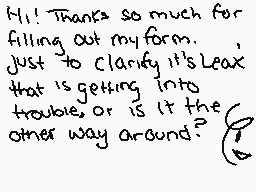 Hi! Thanks so much for
filling out my form.
Just to clarify it's Leax
that is getting into
trouble, or is it the
other way around?